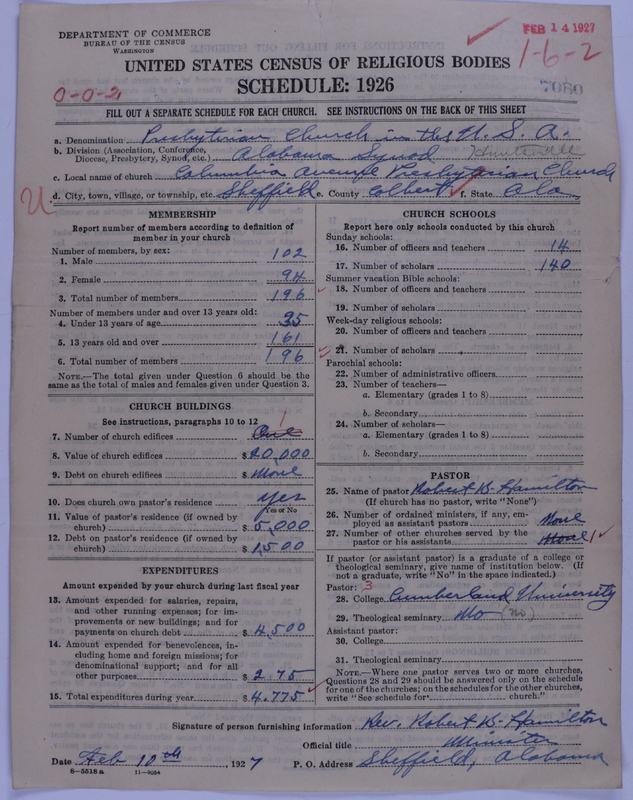 DEPARTMENT OF COMMERCE
BUREAU OF THE CENSUS
WASHINGTON
FEB 14 1927
1-6-2
UNITED STATES CENSUS OF RELIGIOUS BODIES
SCHEDULE: 1926
0-0-2
7080
FILL OUT A SEPARATE SCHEDULE FOR EACH CHURCH. SEE INSTRUCTIONS ON THE BACK OF THIS SHEET
a. Denomination Presbyterian Church in the U. S. A.
b. Division (Association, Conference, Diocese, Presbytery, Synod, etc.) Alabama Synod Huntsville
c. Local name of church Columbia Avenue Presbyterian Church
d. City, town, village, or township, etc. Sheffield e. County Colbert f. State Ala
U
MEMBERSHIP
Report number of members according to definition of
member in your church
Number of members, by sex:
1. Male 102
2. Female 94
3. Total number of members 196
Number of members under and over 13 years old:
4. Under 13 years of age 35
5. 13 years old and over 161
6. Total number of members 196
NOTE.—The total given under Question 6 should be the
same as the total of males and females given under Question 3.
CHURCH BUILDINGS
See instructions, paragraphs 10 to 12
7. Number of church edifices One 1
8. Value of church edifices $20,000
9. Debt on church edifices $None
10. Does church own pastor's residence Yes
Yes or No
11. Value of pastor's residence (if owned by
church) $5,000
12. Debt on pastor's residence (if owned by
church) $1,500
EXPENDITURES
Amount expended by your church during last fiscal year
13. Amount expended for salaries, repairs,
and other running expenses; for im-
provements or new buildings; and for
payments on church debt $4,500
14. Amount expended for benevolences, in-
cluding home and foreign missions; for
denominational support; and for all
other purposes $275
15. Total expenditures during year $4,775
CHURCH SCHOOLS
Report here only schools conducted by this church
Sunday schools:
16. Number of officers and teachers 14
17. Number of scholars 140
Summer vacation Bible schools:
18. Number of officers and teachers
19. Number of scholars
Week-day religious schools:
20. Number of officers and teachers
21. Number of scholars
Parochial schools:
22. Number of administrative officers
23. Number of teachers—
a. Elementary (grades 1 to 8)
b. Secondary
24. Number of scholars—
a. Elementary (grades 1 to 8)
b. Secondary
PASTOR
25. Name of pastor Robert B. Hamilton
(If church has no pastor, write "None")
26. Number of ordained ministers, if any, em-
ployed as assistant pastors None
27. Number of other churches served by the
pastor or his assistants None 1
If pastor (or assistant pastor) is a graduate of a college or
theological seminary, give name of institution below. (If
not a graduate, write "No" in the space indicated.)
Pastor: 3
28. College Cumberland University
29. Theological seminary No (No)
Assistant pastor:
30. College
31. Theological seminary
NOTE.—Where one pastor serves two or more churches,
Questions 28 and 29 should be answered only on the schedule
for one of the churches; on the schedules for the other churches,
write "See schedule for church."
Signature of person furnishing information Rev. Robert B. Hamilton
Official title Minister
Date Feb 10th, 1927 P. O. Address Sheffield, Alabama
8-5518a 11-9064